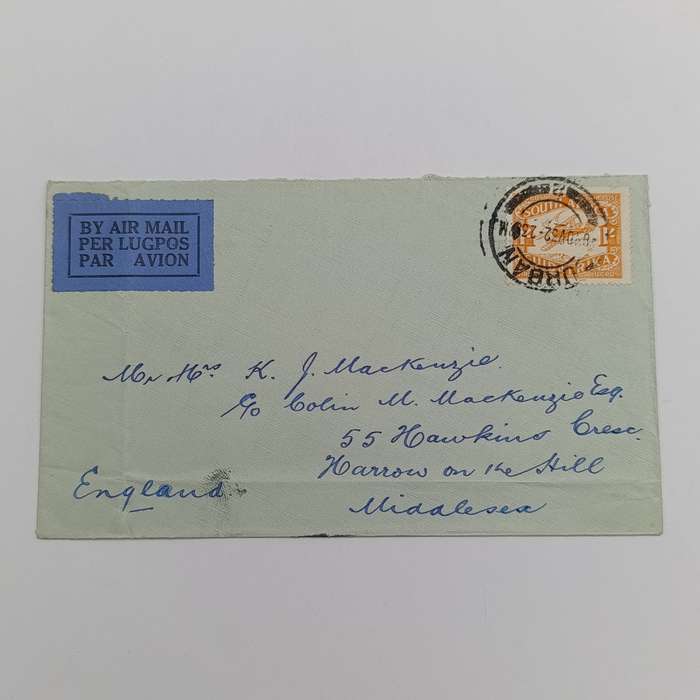 BY AIR MAIL
PER LUGPOS
PAR AVION
SOUTH
1/-
DURBAN
Mr Mrs K. J. Mackenzie.
c/o Colin M. Mackenzie Esq.
55 Hawkins Cresc.
Harrow on the Hill
Middlesex
England